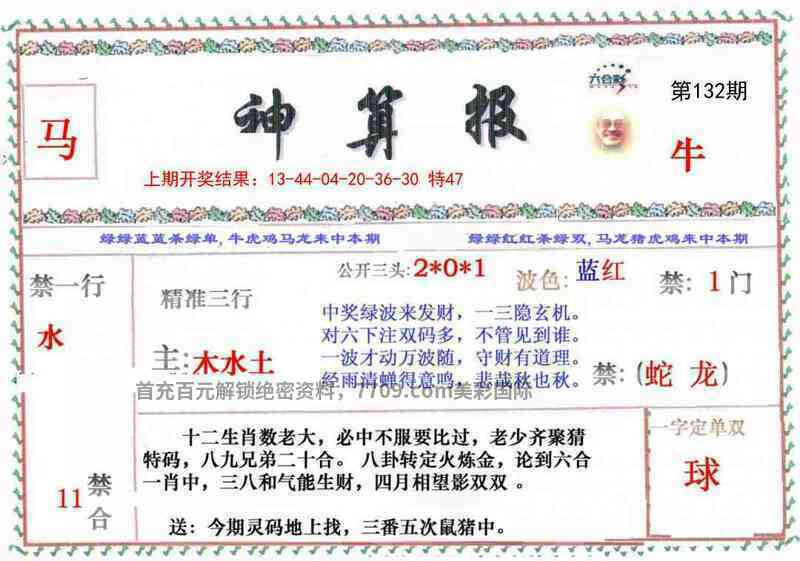 六合彩
第132期
马
神算报
牛
上期开奖结果：13-44-04-20-36-30 特47
绿绿蓝蓝杀绿单,牛虎鸡马龙来中本期
绿绿红红杀绿双,马龙猪虎鸡来中本期
禁一行
水
精准三行
主:木水土
公开三头:2*0*1
波色:蓝红
禁:1门
中奖绿波来发财，一三隐玄机。
对六下注双码多，不管见到谁。
一波才动万波随，守财有道理。
经雨清蝉得意鸣，悲哉秋也秋。
禁:(蛇 龙)
首充百元解锁绝密资料，7709.com美彩国际
11
禁合
十二生肖数老大，必中不服要比过，老少齐聚猜
特码，八九兄弟二十合。八卦转定火炼金，论到六合
一肖中，三八和气能生财，四月相望影双双。
送：今期灵码地上找，三番五次鼠猪中。
一字定单双
球